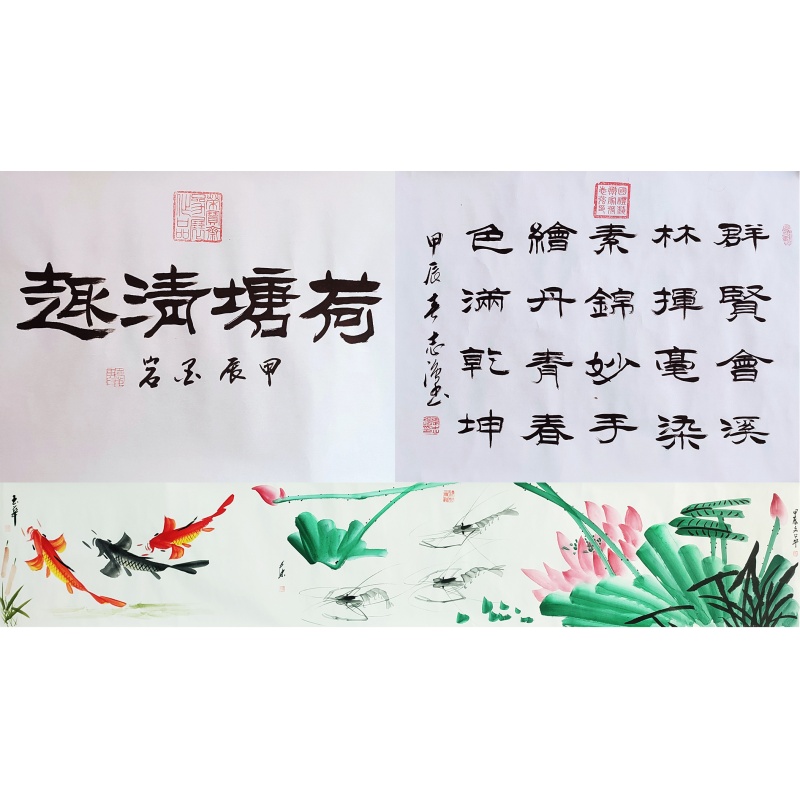 荷塘清趣
甲辰
群賢會溪
林揮毫染
素錦妙手
繪丹青春
色滿乾坤
甲辰春志